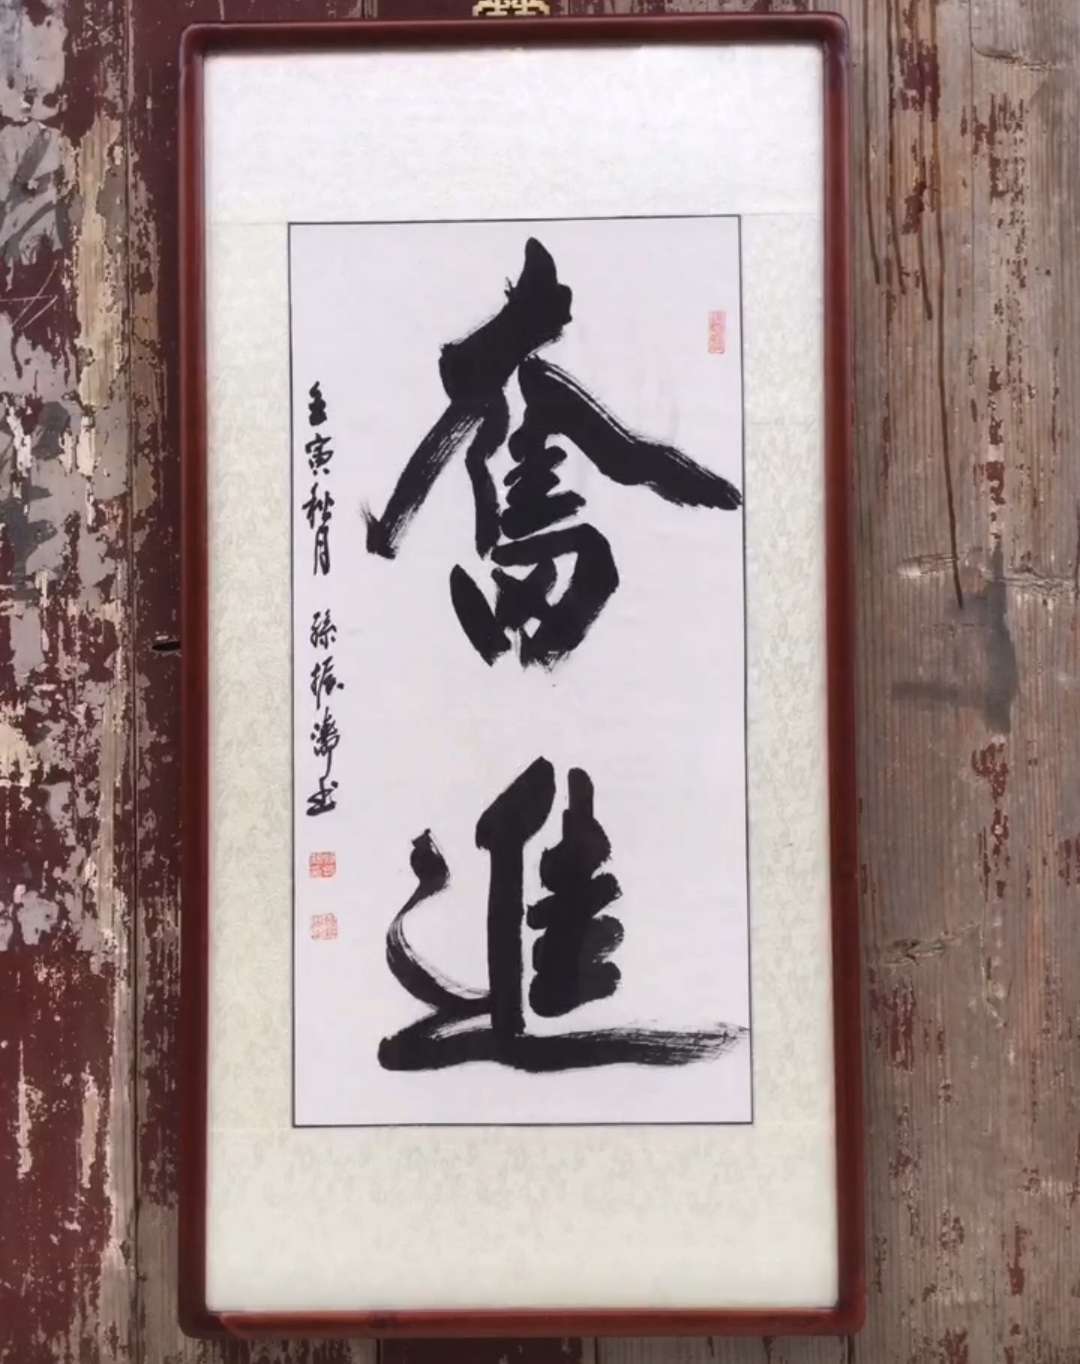 奮進
壬寅秋月 孫振濤书